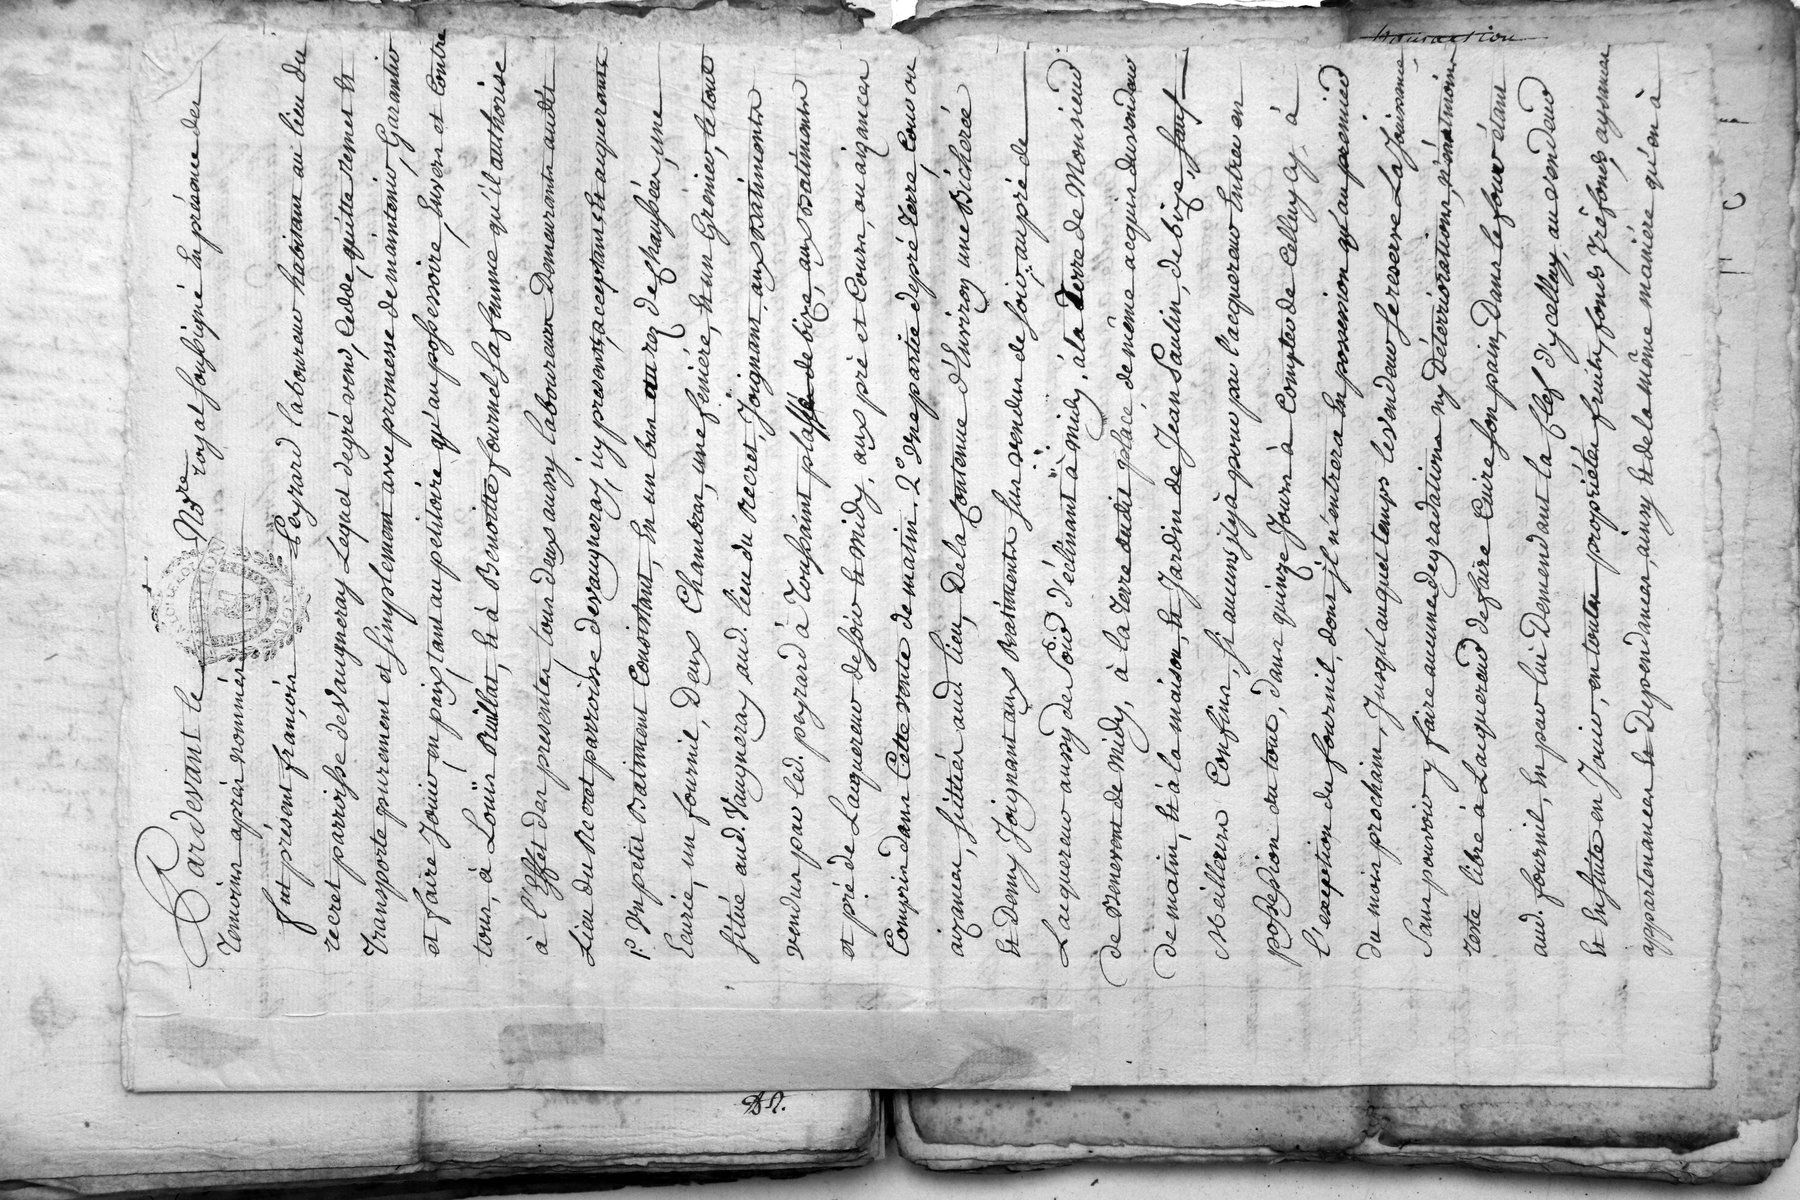 Pardevant le No.re royal soussigné En présence des
temoins après nommés
fut présent françois Peyrard laboureur habitant au lieu du
recret parroisse de Vaugneray Lequel de gré vend, Cedde, quitte remet Et
transporte purement et simplement avec promesse de maintenir, Garantir
et faire Jouir en paix tant au petitoire qu'au possessoire, Envers et Contre
tous, à Louis Buillat, Et à Benoitte fournel sa femme qu'il authorise
à l'Effet des presentes tous deux aussy laboureurs Demeurants audit
Lieu du Recret parroisse de vaugneray, icy presents, acceptants Et acquereurs
1.° Un petit Batiment Consistant, En un bas au rez de chaussée, une
Ecurie, un fournil, Deux Chambres, une feniére, Et un Grenier, le tout
situé aud. Vaugneray aud. lieu du Recret, Joignant aux Batiments
vendus par led. peyrard à Toussaint de bize, aux Batiments
et pré de Laquereur de soir Et midy, aux pré et Cours, ou aizances
Compris dans Cette vente de matin. 2.° Une partie de pré terre, Cour ou
aizances, scituées aud. lieu, De la Contenue d'Environ une Bicherée
Et Demy Joignant aux Batiments sus vendus de soir, au pré de
Lacquereur aussy de soir d'éclinant à midy, à la terre de Monsieur
de Benevent de midy, à la terre sudit place de même acquis du vendeur
de matin, Et à la maison, Et Jardin de Jean Paulin, de bize, sauf
Meilleurs Confins, sy aucuns il y a pour par l'acquereur Entrer en
possession du tout, dans quinze Jours à Compter de Celluy cy, à
l'exception du fournil, dont jl n'entrera En possession qu'au premier
du mois prochain, Jusqu'auquel temps le vendeur se reserve La Jouissance
Sans pouvoir y faire aucune degradations ny Déterriorations, néantmoins
reste libre à Laquereur de faire Cuire son pain, Dans le four étant
aud. fournil, En par lui Demendant la Clef d'ycelluy, au vendeur
Et Ensuite en Jouir, en toutes propriétés fruits, fonds tréfonds, aysances
appartenances Et Dependances, ainsy Et de la même maniére qu'on à